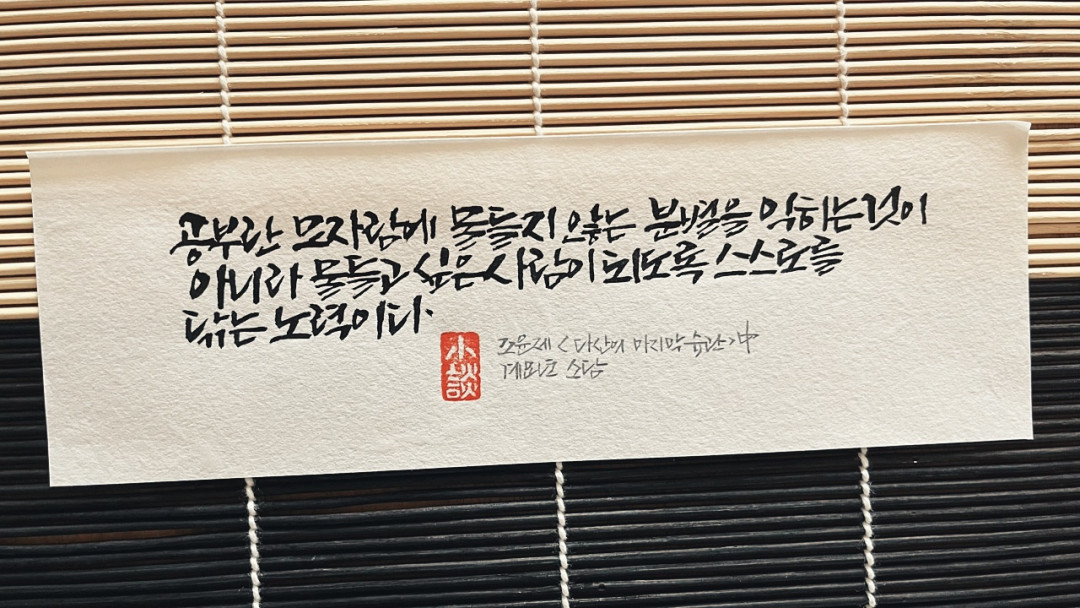 공부란 모자람에 물들지 않는 분별을 익히는것이
아니라 물들고 싶은 사람이 되도록 스스로를
닦는 노력이다.
小談
조윤제 <다산의 마지막 습관> 中
소담